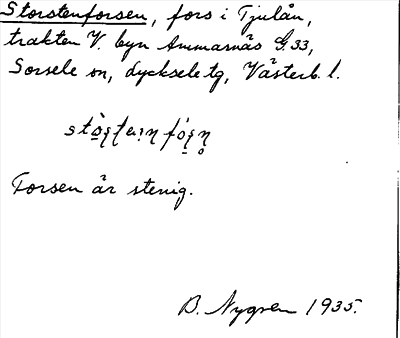 Storstenforsen, fors i Tjulån,
trakten V. byn Ammarnäs G 33,
Sorsele sn, Lycksele tg, Västerb. l.
Forsen är stenig.
B. Nygren 1935.